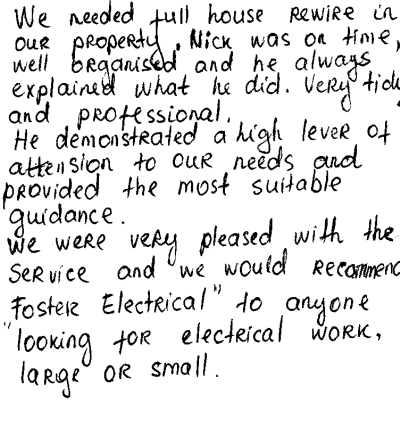 We needed full house rewire in
our property. Nick was on time,
well organised and he always
explained what he did. Very tidy
and professional.
He demonstrated a high lever of
attension to our needs and
provided the most suitable
guidance.
We were very pleased with the
service and we would recommend
Foster Electrical" to anyone
"looking for electrical work,
large or small.